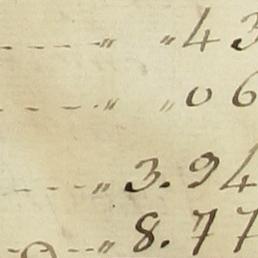 - - - - " " 43
- - - - " " 06
- - - - " 3.94
- - - - " 8.77